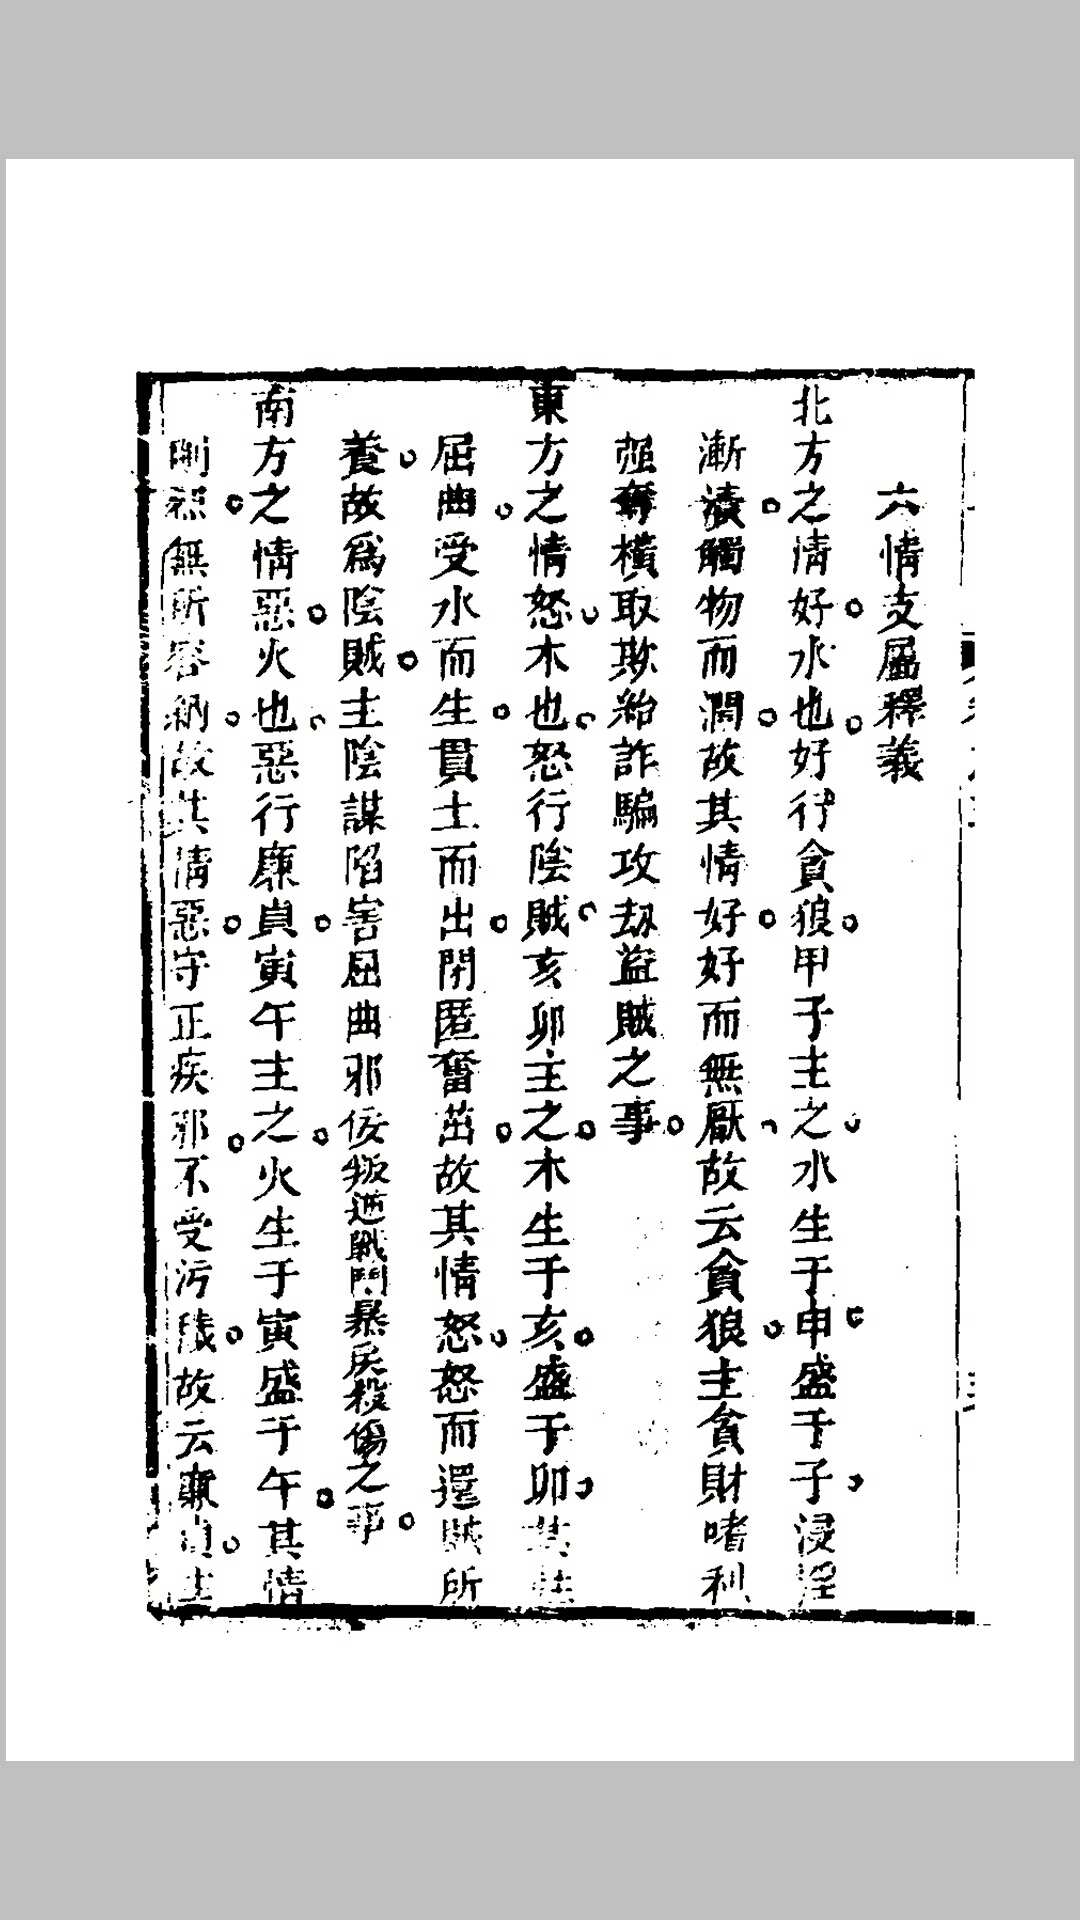 六情支屬釋義
北方之情好水也好行貪狼甲子主之水生于申盛于子浸淫
漸漬觸物而潤故其情好好而無厭故云貪狼主貪財嗜利
强奪橫取欺紿詐騙攻刼盜賊之事
東方之情怒木也怒行陰賊亥卯主之木生于亥盛于卯其
屈曲受水而生貫土而出閉匿奮茁故其情怒怒而還賊所
養故爲陰賊主陰謀陷害屈曲邪佞叛逆戰鬥暴戾殺傷之事
南方之情惡火也惡行廉貞寅午主之火生于寅盛于午其情
剛烈無所容納故其情惡守正疾邪不受污穢故云廉貞主